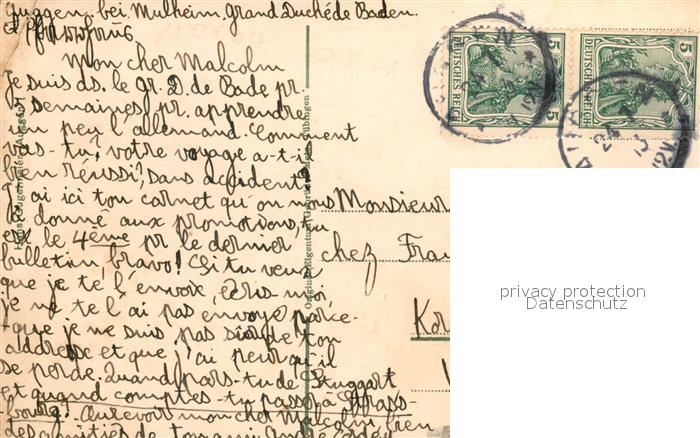 Guggen, bei Mulheim, Grand Duché de Baden.
Mon cher Malcolm
Je suis ds. le Gr. D. de Bade pr.
semaines pr. apprendre
un peu l'allemand. Comment
vas-tu, votre voyage a-t-il
bien réussi, sans accident?
J'ai ici ton carnet qu'on nous
a donné aux promotions, tu
es le 4ème pr le dernier
bulletin, bravo! Si tu veux
que je te l'envoie, écris-moi,
je ne te l'ai pas envoyé parce-
que je ne suis pas sûr de ton
address et que j'ai peur qu'il
se perde. Quand pars-tu de Stuggart
et quand comptes-tu passer à Strass-
bourg? Au revoir mon cher Malcolm, bien
des amitiés de ton ami André
Monsieur
chez Fra
DEUTSCHES REICH
5 5
DEUTSCHES REICH
5 5
privacy protection
Datenschutz